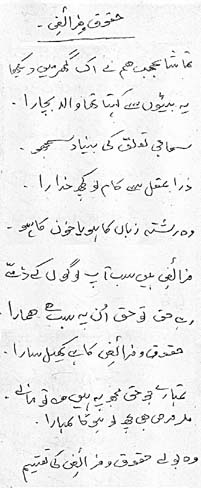 حقوق و فرائض۔
تماشا عجب ہم نے اک گھر میں دیکھا
یہ بیٹوں سے کہتا تھا والد بچارا۔
سماجی تعلق کی بنیاد سمجھو۔
ذرا عقل سے کام لو کچھ خدارا۔
وہ رشتہ زباں کا ہو یا خون کا ہو۔
فرائض ہیں سب آپ لوگوں کے ذمّے
رہے حق تو حق اُن پہ سب ہے ہمارا
حقوق و فرائض کا ہے کھیل سارا۔
تمہارے جو حق مجھ پہ ہیں وہ تو مانے
مگر فرض بھی کچھ تو ہوگا تمہارا۔
وہ بولے حقوق و فرائض کی تقسیم